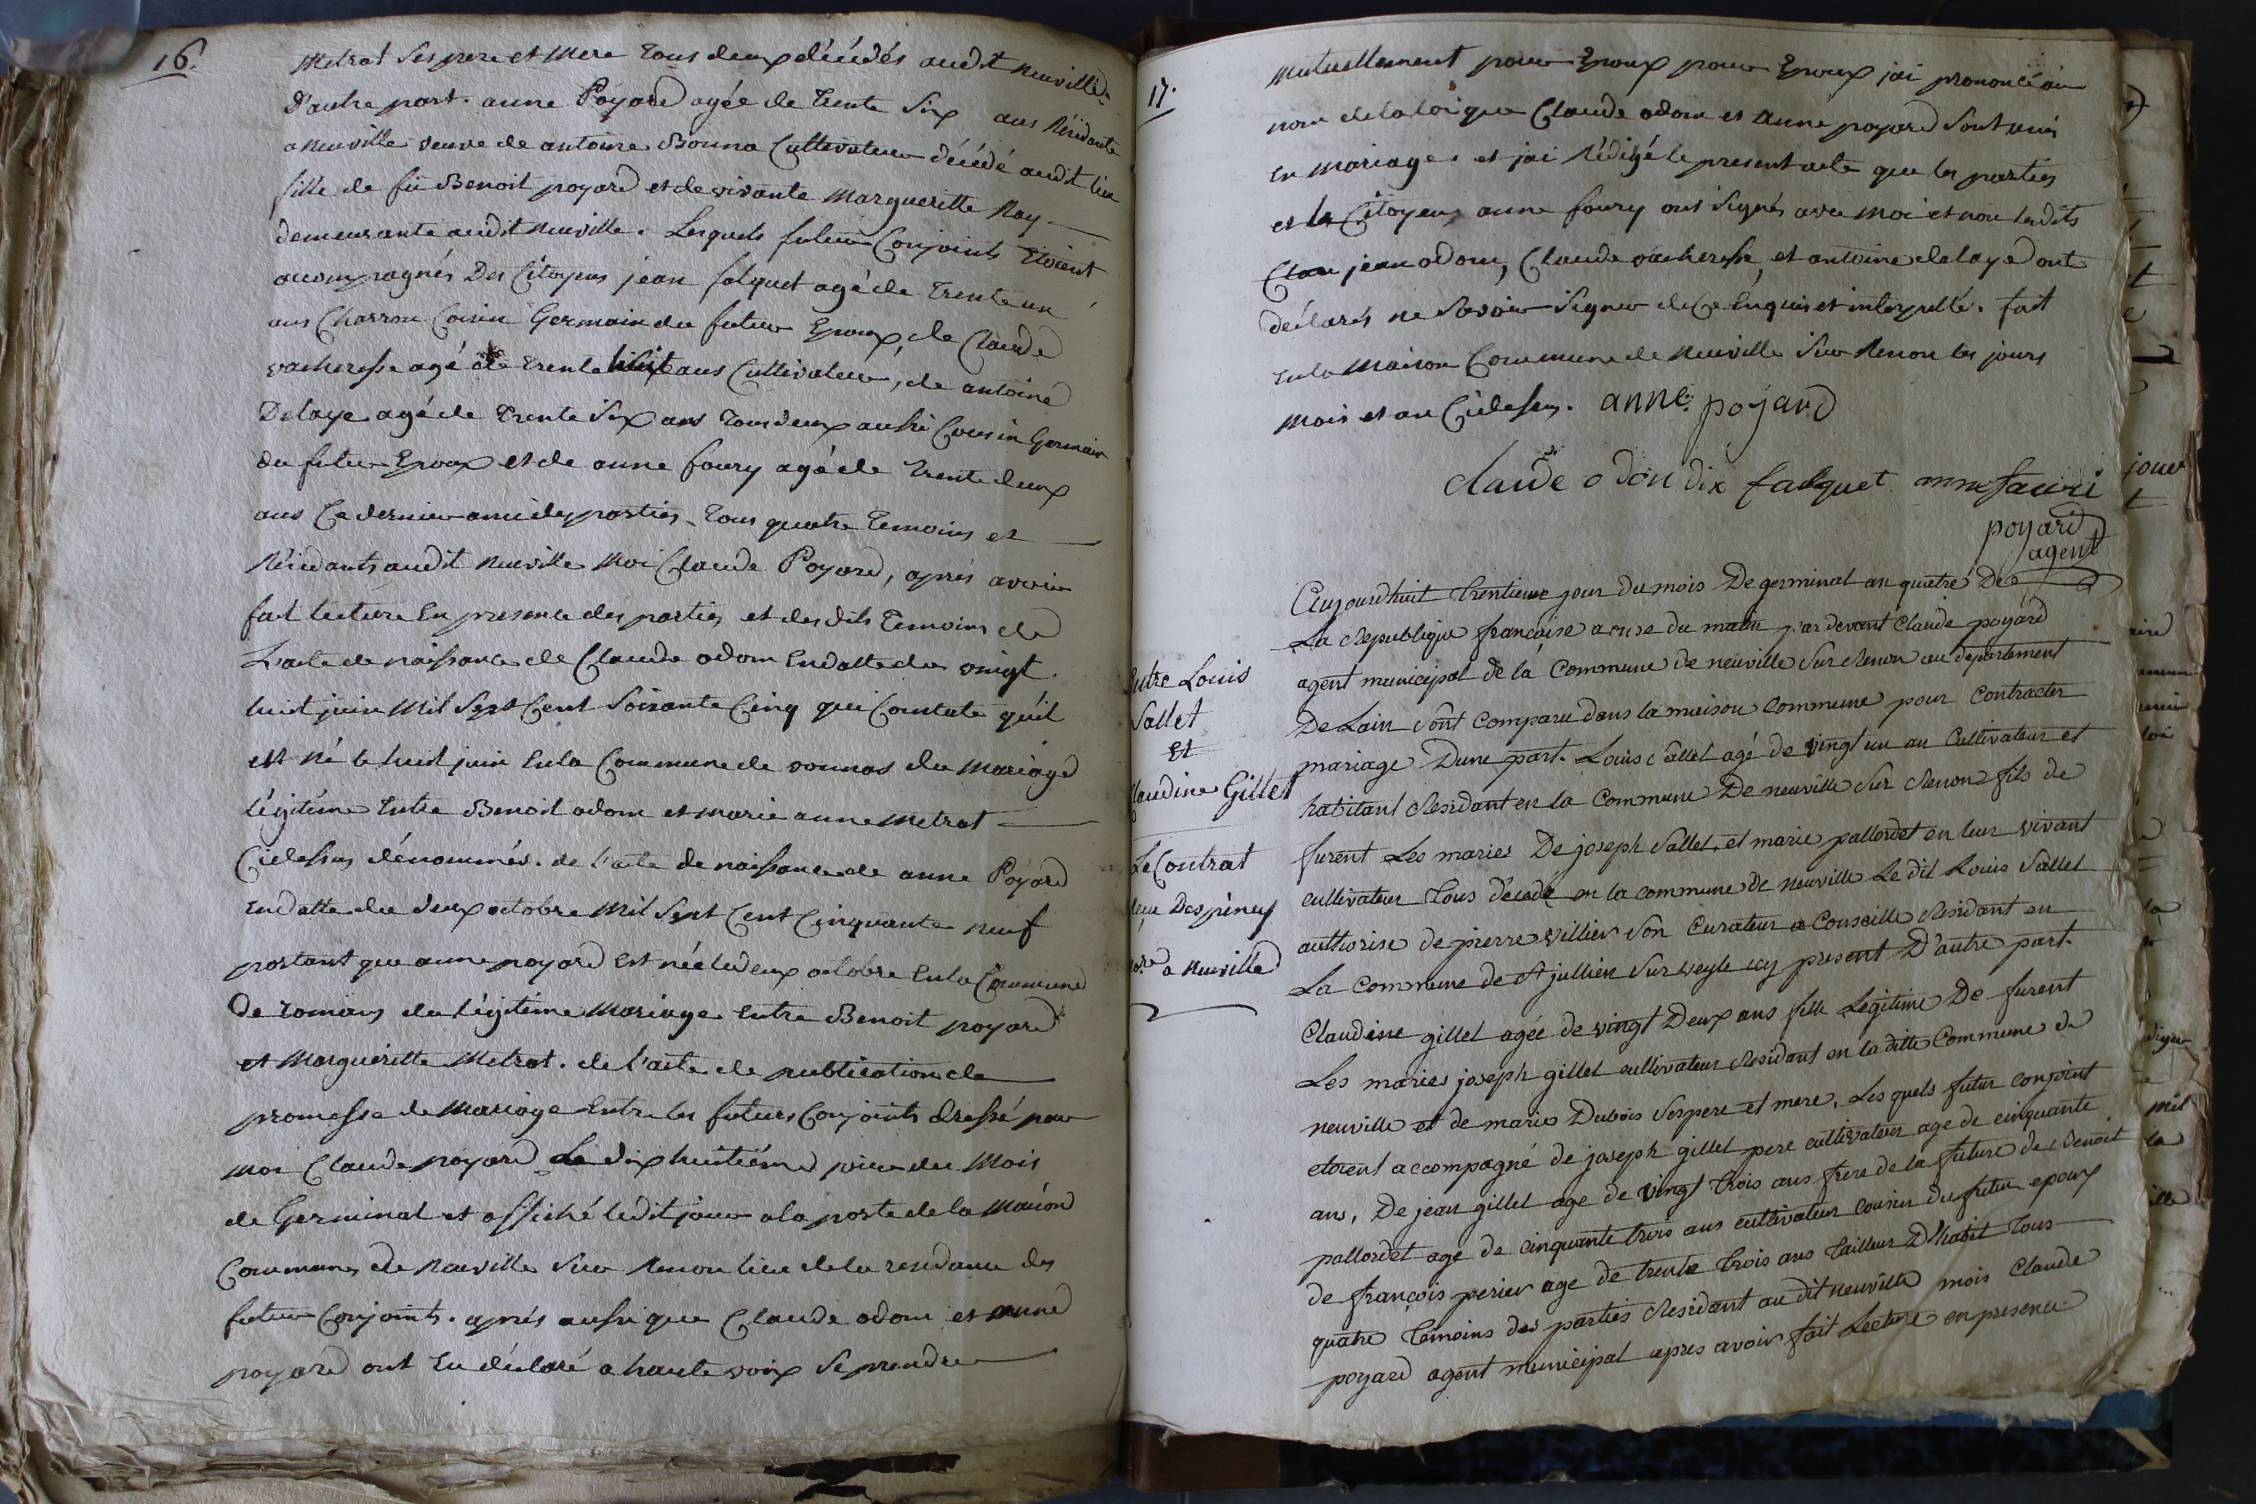 16.
Metrat ses pere et Mere tous deux décédés audit neuville
d'autre part. anne Poyard agée de trente six ans Résidante
a neuville veuve de antoine Bonna Cultivateur décédé audit lieu
fille de fû Benoit poyard et de vivante Margueritte Ray
demeurante audit neuville. Lesquels futurs Conjoints Etoient
accompagnés Des Citoyens jean falquet agé de trente un
ans Charron Coisin Germain du futur Epoux, de Claude
vacheresse agé de trente huit ans Cultivateur, de antoine
Delaye agé de trente six ans tous deux aussi Cousin Germain
du futur Epoux et de anne foury agé de trente deux
ans Ce dernier ami des parties, tous quatre temoins et
Résidants audit neuville Moi Claude Poyard, après avoir
fait lecture En presence des parties et desdits temoins de
L'acte de naissance de Claude odom En datte du vingt
huit juin Mil Sept Cent Soixante Cinq qui Constate qu'il
est né le huit juin En la Commune de vonnas du Mariage
légitéme Entre Benoit odom et marie anne Metrat
Cidessus dénommés. de l'acte de naissance de anne Poyard
En datte du deux octobre Mil Sept Cent Cinquante neuf
portant que anne poyard est née le deux octobre En la Commune
de romans du légitéme Mariage Entre Benoit poyard
et Marguéritte Metrat. de l'acte de publication de
promesse de Mariage Entre les futurs Conjoints dressé par
moi Claude poyard Le dix huitiéme jour du Mois
de Germinal et affiché ledit jour a la porte de la Maison
Commune de Neuville sur Renon lieu de la residance des
futur Conjoints. après aussi que Claude odom et anne
poyard ont Eu déclaré a haute voix se prendre
17.
Mutuellement pour Epoux pour Epoux jai prononcé au
nom de la loi que Claude odom et anne poyard Sont unis
En Mariage. et jai Rédigé le present acte que les parties
et le Citoyen anne foury ont Signés avec Moi et non lesdits
Clau jean odom, Claude vacheresse, et antoine delaye ont
déclarés ne Savoir Signer de Ce Enquis et interpellé. fait
En la Maison Commune de Neuville Sur Renon les jours
Mois et an Cidessus. anne poyard
claude odon dix falquet anne fauri
poyard
agent
Entre Louis
Sallet
Et
Claudine Gillet
Le Contrat
reçu Despèney
no.re a neuville
Aujourdhuit trentieme jour du mois De germinal an quatre De
La Republique francaise a onze du matin par devant Claude poyard
agent municipal de la Commune de neuville Sur Renon au departement
De Lain sont Comparu dans la maison Commune pour Contracter
mariage Dune part. Louis Sallet agé de vingt un an Cultivateur et
habitant Residant en la Commune De neuville Sur Renon fils de
furent Les maries De joseph Sallet, et marie pallordet en leur vivant
cultivateur tous décédé en la commune de neuville Le dit Louis Sallet
authorise de pierre villier Son Curateur a Conseille Residant en
La Commune de St jullien Sur veyle icy present D'autre part.
Claudine gillet agée de vingt Deux ans fille Legitime De furent
Les maries joseph gillet cultivateur Residant en la ditte Commune de
neuville et de marie Dubois Ses pere et mere, Les quels futur conjoint
etoient accompagné de joseph gillet pere cultivateur age de cinquante
ans, De jean gillet age de vingt trois ans frere de la future de Benoit
pallordet age de cinquante trois ans cultivateur cousin du futur epoux
de françois perier age de trente trois ans tailleur D'habit tous
quatre temoins des parties Residant au dit neuville mois Claude
poyard agent municipal apres avoir fait Lecture en presence